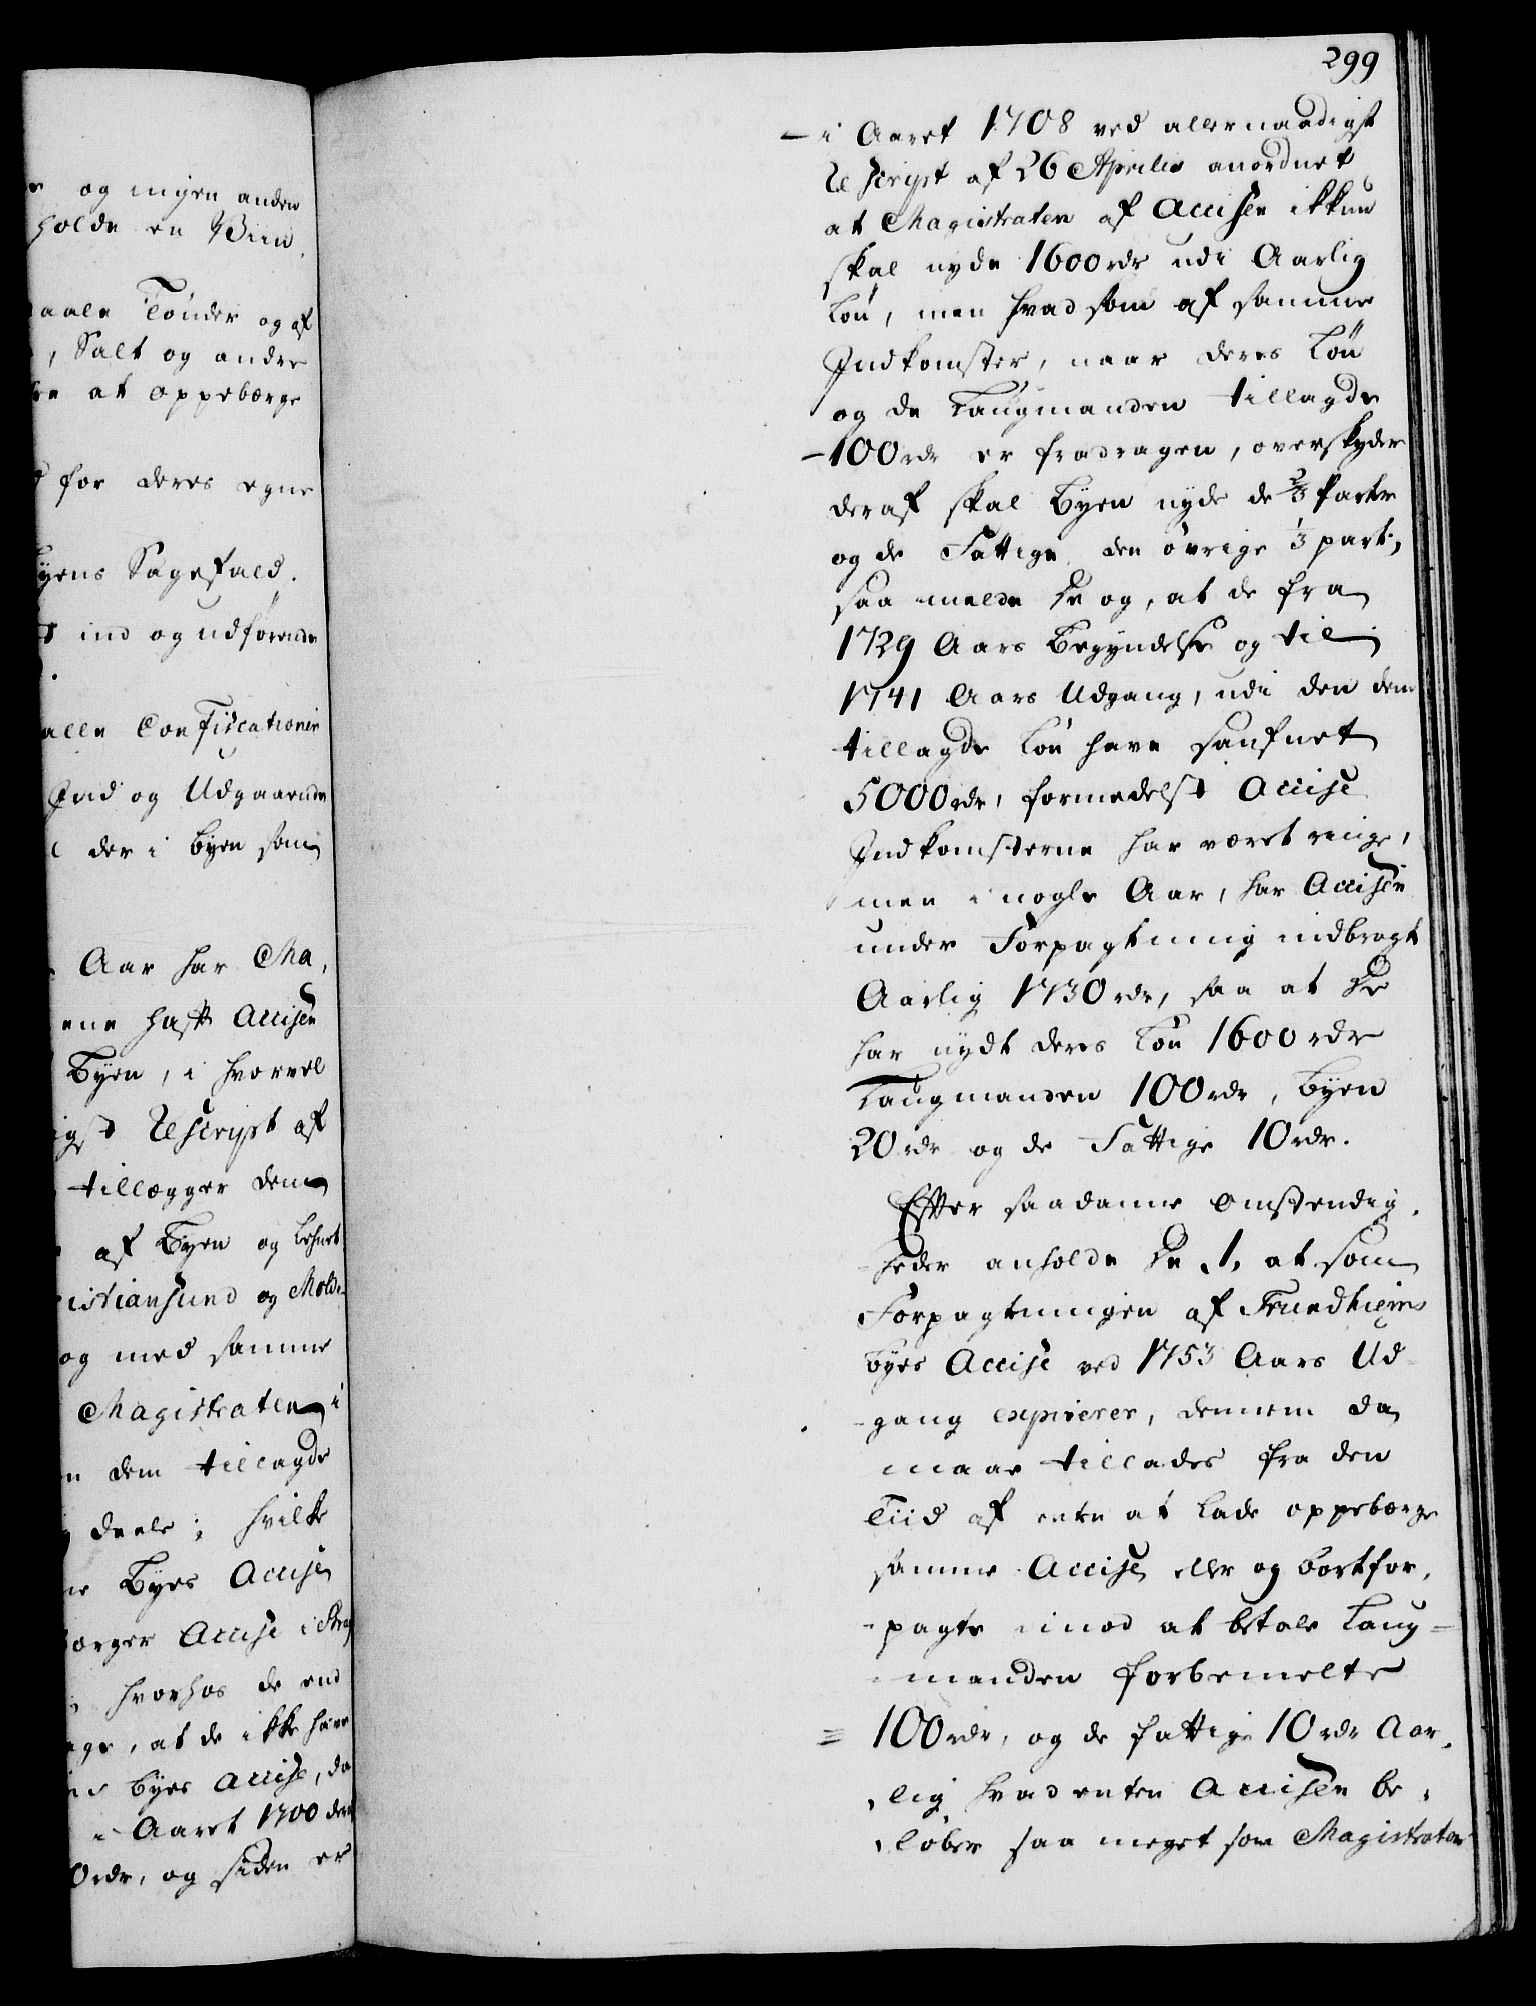 og ingen anden
holde en Biin
aale Tønder og af
, Salt og andre
at oppebærge
for deres egne
yens Sagefald.
ind og udførende
alle Confiscationer
Ind og Udgaaende
der i byen som
Aar har Ma,
ene haft Accisen
Byen, i hvorvel
igst Rescript af
tillægger dem
af Byen og Lehnet
istiansund og Molde
og med samme
Magistraten i
n dem tillagde
deele; hvilke
ne Byes Accise
bærger Accise i
hvorhos de end
age, at de ikke have
byes Accise, da
i Aaret 1700 der
0 rdr, og siden er
299
- i Aaret 1708 ved allernaadigst
Rescript af 26 Aprilis anordnet
at Magistraten af Accisen ikkun
skal nyde 1600 rdr udi Aarlig
Løn, men hvad som af samme
Indkomster, naar deres Løn
og de Laugmanden tillagde
- 100 rdr er fradragen, overskyder
deraf skal Byen nyde de 2/3 Parter
og de Fattige den øvrige 1/3 part,
saa melde de og, at de fra
1729 Aars Begyndelse og til
1741 Aars Udgang, udi den dem
tillagde Løn have saufnet
5000 rdr, formedelst Accise
Indkomsterne har været ringe,
men i nogle Aar, har Accisen
under Forpagtning indbragt
Aarlig 1730 rdr, saa at de
har nydt deres Løn 1600 rdr
Laugmanden 100 rdr, byen
20 rdr og de Fattige 10 rdr.
Efter saadanne Omstendig,
heder anholde de, 1, at som
Forpagtningen af Trundhiems
byes Accise ved 1753 Aars Ud-
gang expirerer, dennem da
maae tillades fra den
Tiid af enten at lade oppebærge
samme Accise eller og bortfor,
-pagte imod at betale Laug=
manden forbemelte
= 100 rdr, og de fattige 10 rdr Aar,
,lig hvad enten Accisen be,
,løber saa meget som Magistraten